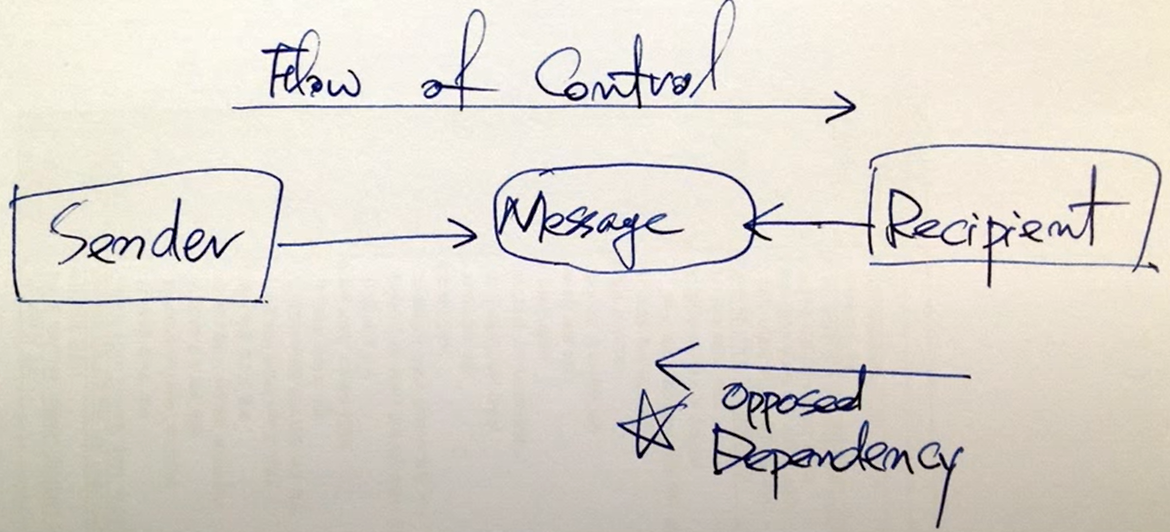 Flow of Control
Sender
Message
Recipient
opposed
Dependency